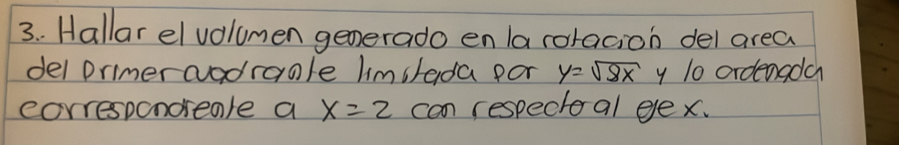 3. Hallar el volumen generado en la rotación del area
del primer cuadrante limitada por y=√8x y la ordenada
correspondiente a x=2 con respecto al eje x.